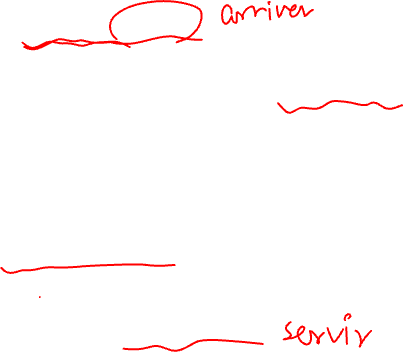 arriver
servir